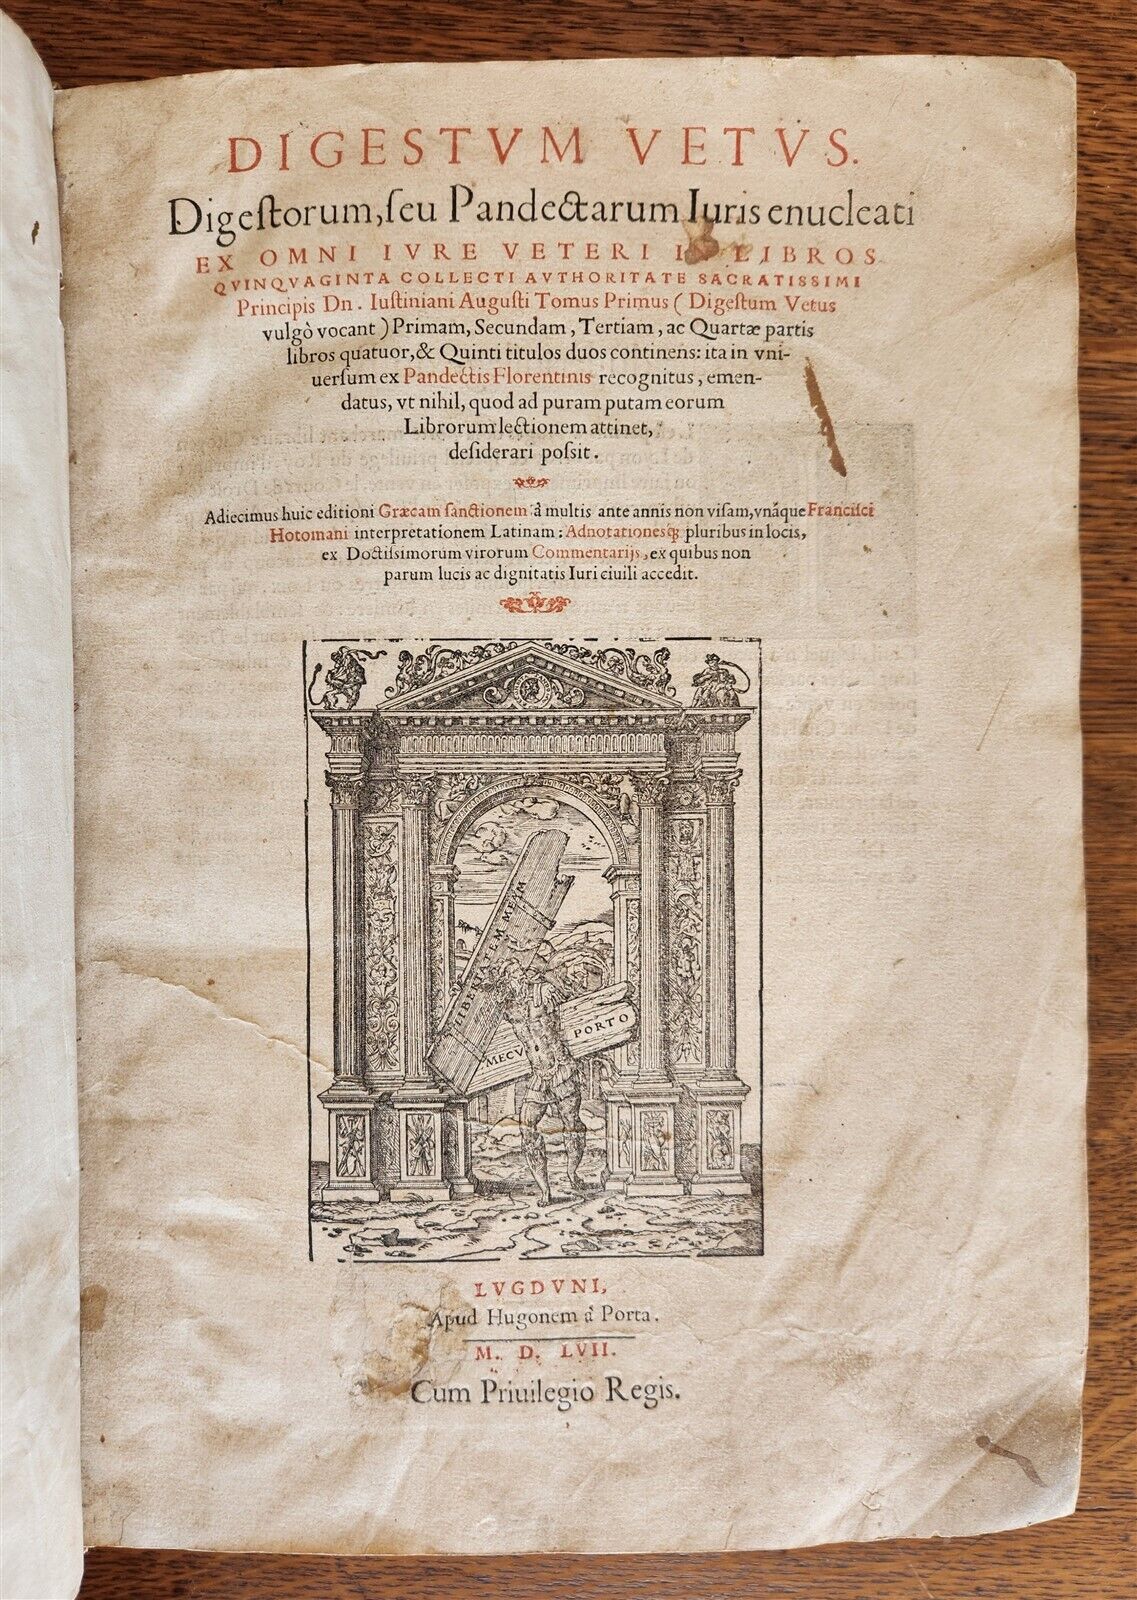 DIGESTVM VETVS.
Digeſtorum, ſeu Pandectarum Iuris enucleati
EX OMNI IVRE VETERI IN LIBROS
QVINQVAGINTA COLLECTI AVTHORITATE SACRATISSIMI
Principis Dn. Iuſtiniani Auguſti Tomus Primus ( Digeſtum Vetus
vulgò vocant ) Primam, Secundam, Tertiam, ac Quartæ partis
libros quatuor, & Quinti titulos duos continens: ita in vni-
uerſum ex Pandectis Florentinis recognitus, emen-
datus, vt nihil, quod ad puram putam eorum
Librorum lectionem attinet,
deſiderari poſsit.
Adiecimus huic editioni Græcam ſanctionem à multis ante annis non viſam, vnáque Franciſci
Hotomani interpretationem Latinam: Adnotationesq́; pluribus in locis,
ex Doctiſsimorum virorum Commentarijs, ex quibus non
parum lucis ac dignitatis Iuri ciuili accedit.
LIBERTATEM MEAM
MECV PORTO
LVGDVNI,
Apud Hugonem à Porta.
M. D. LVII.
Cum Priuilegio Regis.